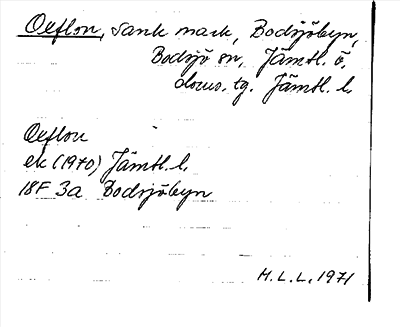 Oeflon, sank mark, Bodsjöbyn,
Bodsjö sn, Jämtl. ö,
doms. tg. Jämtl. l.
Oeflon
ek (1970) Jämtl. l.
18F 3a Bodsjöbyn
M.L.L. 1971